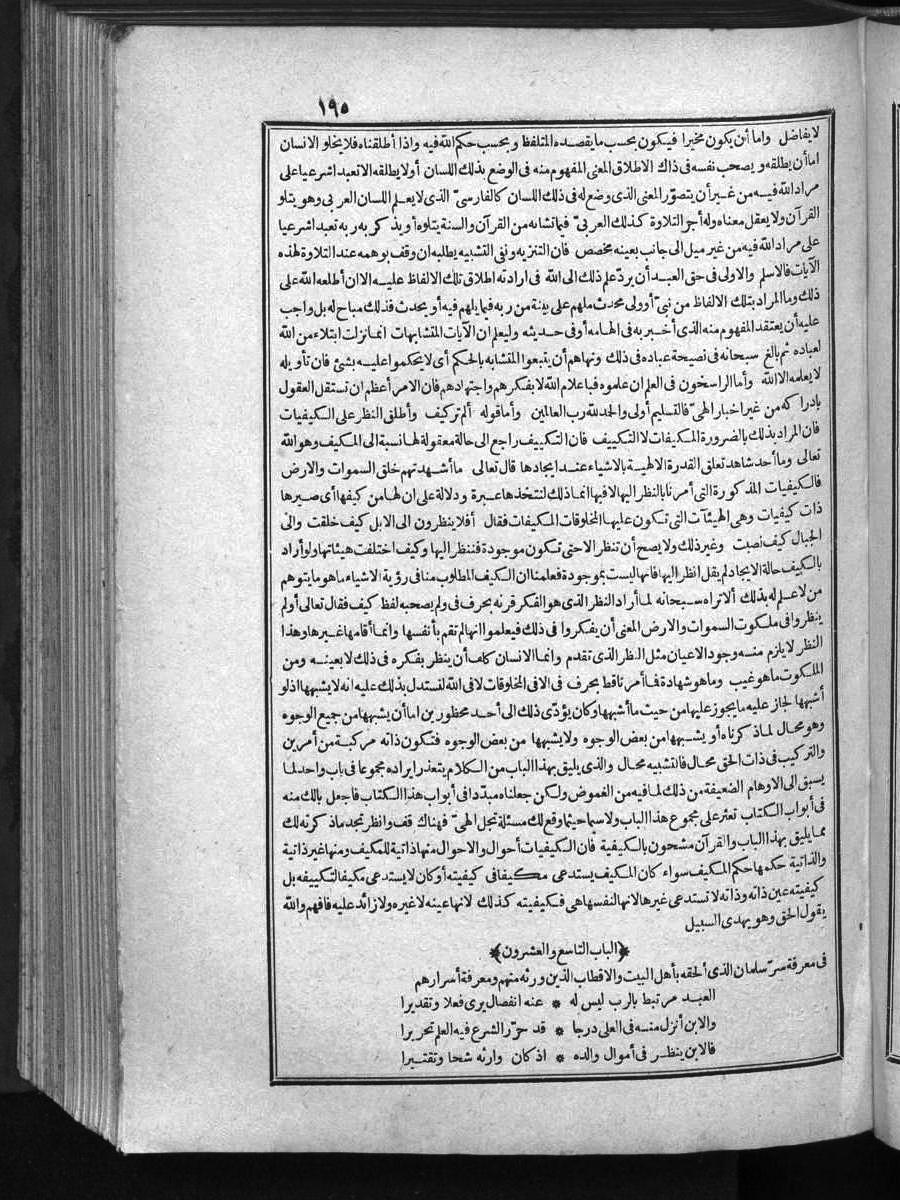 ١٩٥
لايفاضل واما أن يكون مخيرا فيكون بحسب ما يقصده المتلفظ وبحسب حكم الله فيه واذا أطلقناه فلا يخلو الانسان
اما أن يطلقه ويصحب نفسه فى ذاك الاطلاق المعنى المفهوم منه فى الوضع بذلك اللسان أولا يطلقه الا تعبدا شرعيا على
مراد الله فيه من غير أن يتصوّر المعنى الذى وضع له فى ذلك اللسان كالفارسىّ الذى لا يعلم اللسان العربى وهو يتلو
القرآن ولا يعقل معناه وله أجر التلاوة كذلك العربىّ فيما تشابه من القرآن والسنة يتلوه أويذكر به ربه تعبدا شرعيا
على مراد الله فيه من غير ميل الى جانب بعينه مخصص فان التنزيه ونفى التشبيه يطلبه ان وقف بوهمه عند التلاوة لهذه
الآيات فالاسلم والاولى فى حق العبد أن يردّ علم ذلك الى الله فى ارادته اطلاق تلك الالفاظ عليه الا ان أطلعه الله على
ذلك وما المراد بتلك الالفاظ من نبىّ أو ولى محدث ملهم على بينة من ربه فيما يلهم فيه أو يحدث فذلك مباح له بل واجب
عليه أن يعتقد المفهوم منه الذى أخبر به فى الهامه أو فى حديثه وليعلم ان الآيات المتشابهات انما نزلت ابتلاء من الله
لعباده ثم بالغ سبحانه فى نصيحة عباده فى ذلك ونهاهم أن يتبعوا المتشابه بالحكم أى لا يحكموا عليه بشئ فان تأويله
لا يعلمه الا الله وأما الراسخون فى العلم ان علموه فباعلام الله لا بفكرهم واجتهادهم فان الامر أعظم ان تستقل العقول
بادراكه من غير اخبار الهىّ فالتسليم أولى والحد لله رب العالمين وأما قوله ألم تركيف وأطلق النظر على الكيفيات
فان المراد بذلك بالضرورة المكيفات لا التكييف فان التكييف راجع الى حالة معقولة لها نسبة الى المكيف وهو الله
تعالى وما أحد شاهد تعلق القدرة الالهية بالاشياء عند ايجادها قال تعالى ما أشهدتهم خلق السموات والارض
فالكيفيات المذكورة التى أمرنا بالنظر اليها لا فيها انما ذلك لنتخذها عبرة ودلالة على ان لها من كيفها أى صيرها
ذات كيفيات وهى الهيئآت التى تكون عليها المخلوقات المكيفات فقال أفلا ينظرون الى الابل كيف خلقت والى
الجبال كيف نصبت وغير ذلك ولا يصح أن تنظر الا حتى تكون موجودة فننظر اليها وكيف اختلفت هيئاتها ولو أراد
بالكيف حالة الايجاد لم يقل انظر اليها فانها ليست بموجودة فعلمنا ان الكيف المطلوب منا فى رؤية الاشياء ما هو ما يتوهم
من لا علم له بذلك ألا تراه سبحانه لما أراد النظر الذى هو الفكر قرنه بحرف فى ولم يصحبه لفظ كيف فقال تعالى أولم
ينظروا فى ملكوت السموات والارض المعنى أن يفكروا فى ذلك فيعلموا انها لم تقم بأنفسها وانما أقامها غيرها وهذا
النظر لا يلزم منه وجود الاعيان مثل النظر الذى تقدم وانما الانسان كلف أن ينظر بفكره فى ذلك لا بعينه ومن
الملكوت ما هو غيب وما هو شهادة فما أمرنا قط بحرف فى الا فى المخلوقات لا فى الله لنستدل بذلك عليه انه لا يشبهها اذلو
أشبهها لجاز عليه ما يجوز عليها من حيث ما أشبهها وكان يؤدّى ذلك الى أحد محظورين اما أن يشبهها من جميع الوجوه
وهو محال لما ذكرناه أو يشبهها من بعض الوجوه ولا يشبهها من بعض الوجوه فتكون ذاته مركبة من أمرين
والتركيب فى ذات الحق محال فالتشبيه محال والذى يليق بهذا الباب من الكلام يتعذر ايراده مجموعا فى باب واحد لما
يسبق الى الاوهام الضعيفة من ذلك لما فيه من الغموض ولكن جعلناه مبدّدا فى أبواب هذا الكتاب فاجعل بالك منه
فى أبواب الكتاب تعثر على مجموع هذا الباب ولا سيما حيثما وقع لك مسئلة تجل الهىّ فهناك قف وانظر تجد ما ذكرته لك
مما يليق بهذا الباب والقرآن مشحون بالكيفية فان الكيفيات أحوال والاحوال منها ذاتية للمكيف ومنها غير ذاتية
والذاتية حكمها حكم المكيف سواء كان المكيف يستدعى مكيفا فى كيفيته أو كان لا يستدعى مكيفا لتكييفه بل
كيفيته عين ذاته وذاته لا تستدعى غيرها لانها لنفسها هى فكيفيته كذلك لانها عينه لا غيره ولا زائد عليه فافهم والله
يقول الحق وهو يهدى السبيل
﴿الباب التاسع والعشرون﴾
فى معرفة سرّ سلمان الذى ألحقه بأهل البيت والاقطاب الذين ورثه منهم ومعرفة أسرارهم
العبد مرتبط بالرب ليس له * عنه انفصال يرى فعلا وتقديرا
والابن أنزل منه فى العلى درجا * قد حرّر الشرع فيه العلم تحريرا
فالابن ينظر فى أموال والده * اذ كان وارثه شحا وتقتيرا